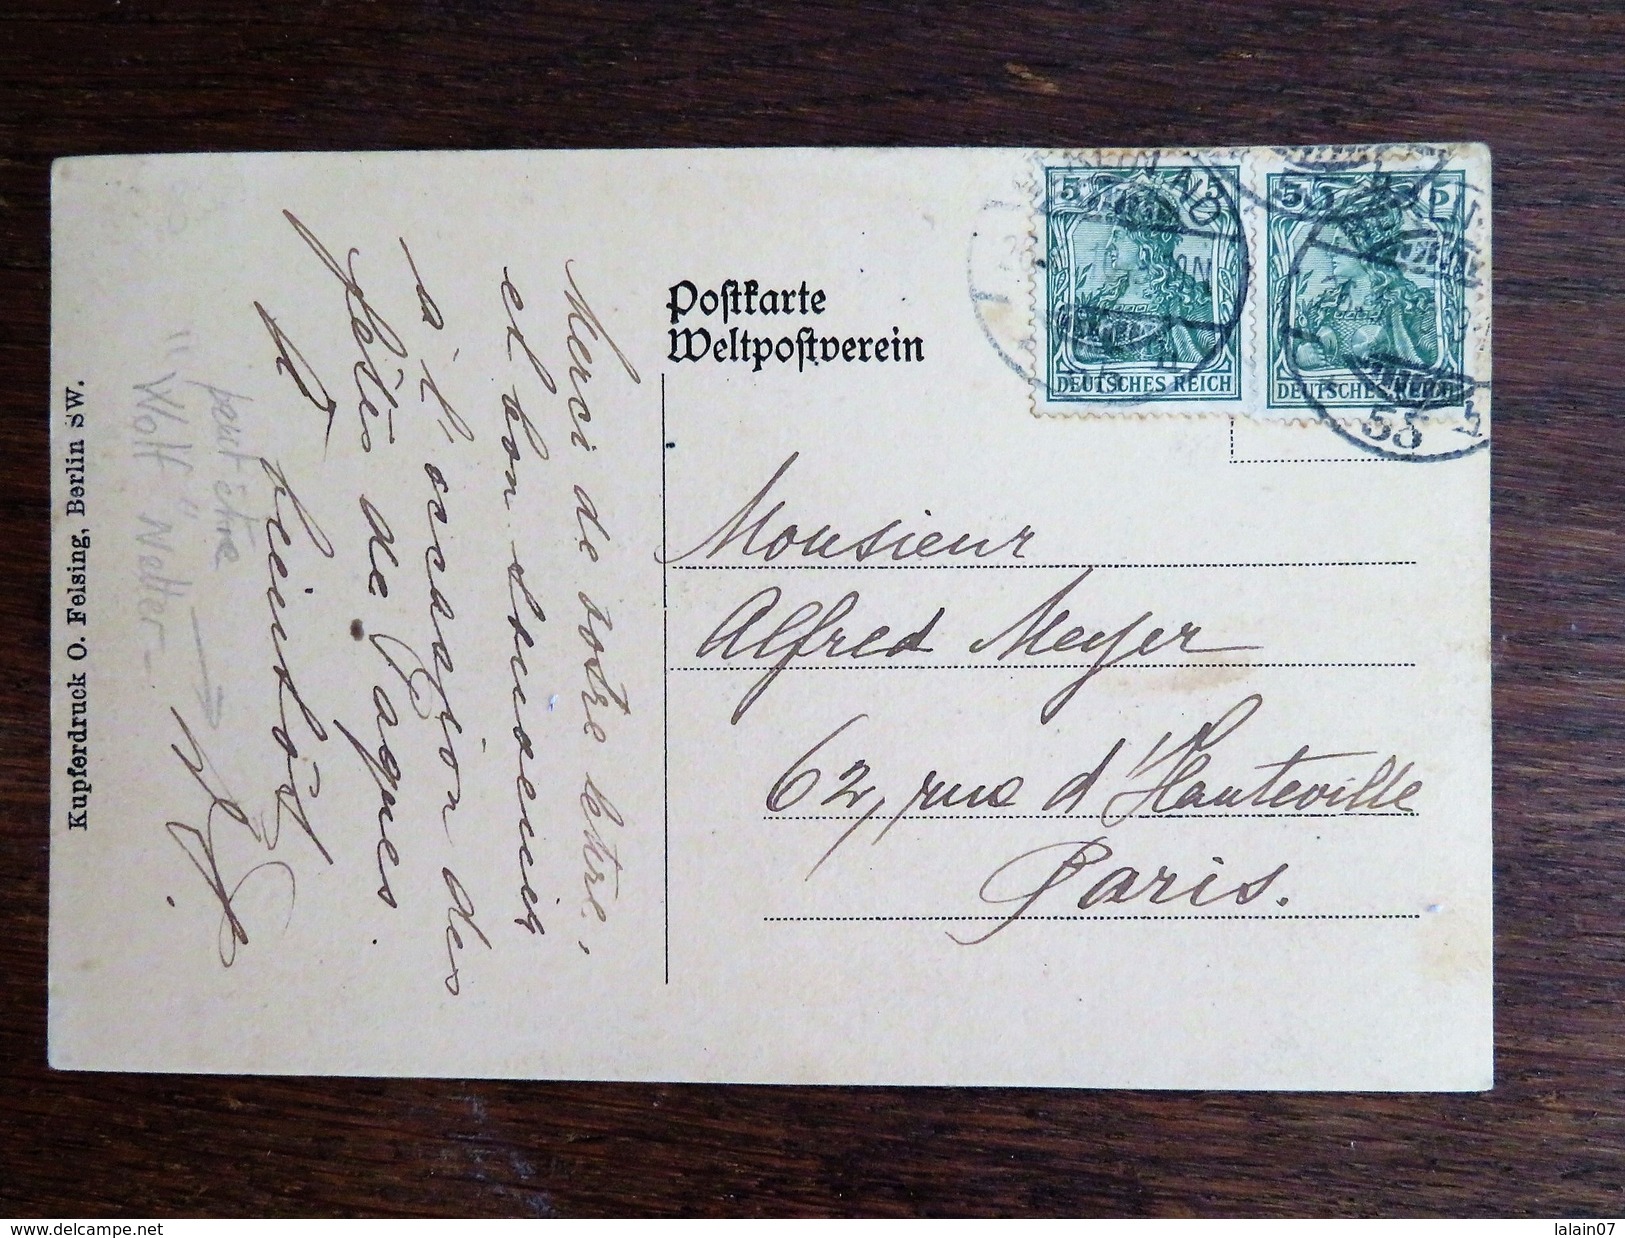 Postkarte
Weltpostverein
5 5
DEUTSCHES REICH
5 5
DEUTSCHES REICH
55
Monsieur
Alfred Meyer
62, rue d'Hauteville
Paris.
Merci de votre lettre,
et bon souvenir
à l'occasion des
fêtes de Pâques.
À bientôt
peut être
"Wolf" Walter
Kupferdruck O. Felsing, Berlin SW.
delcampe.net
lalain07